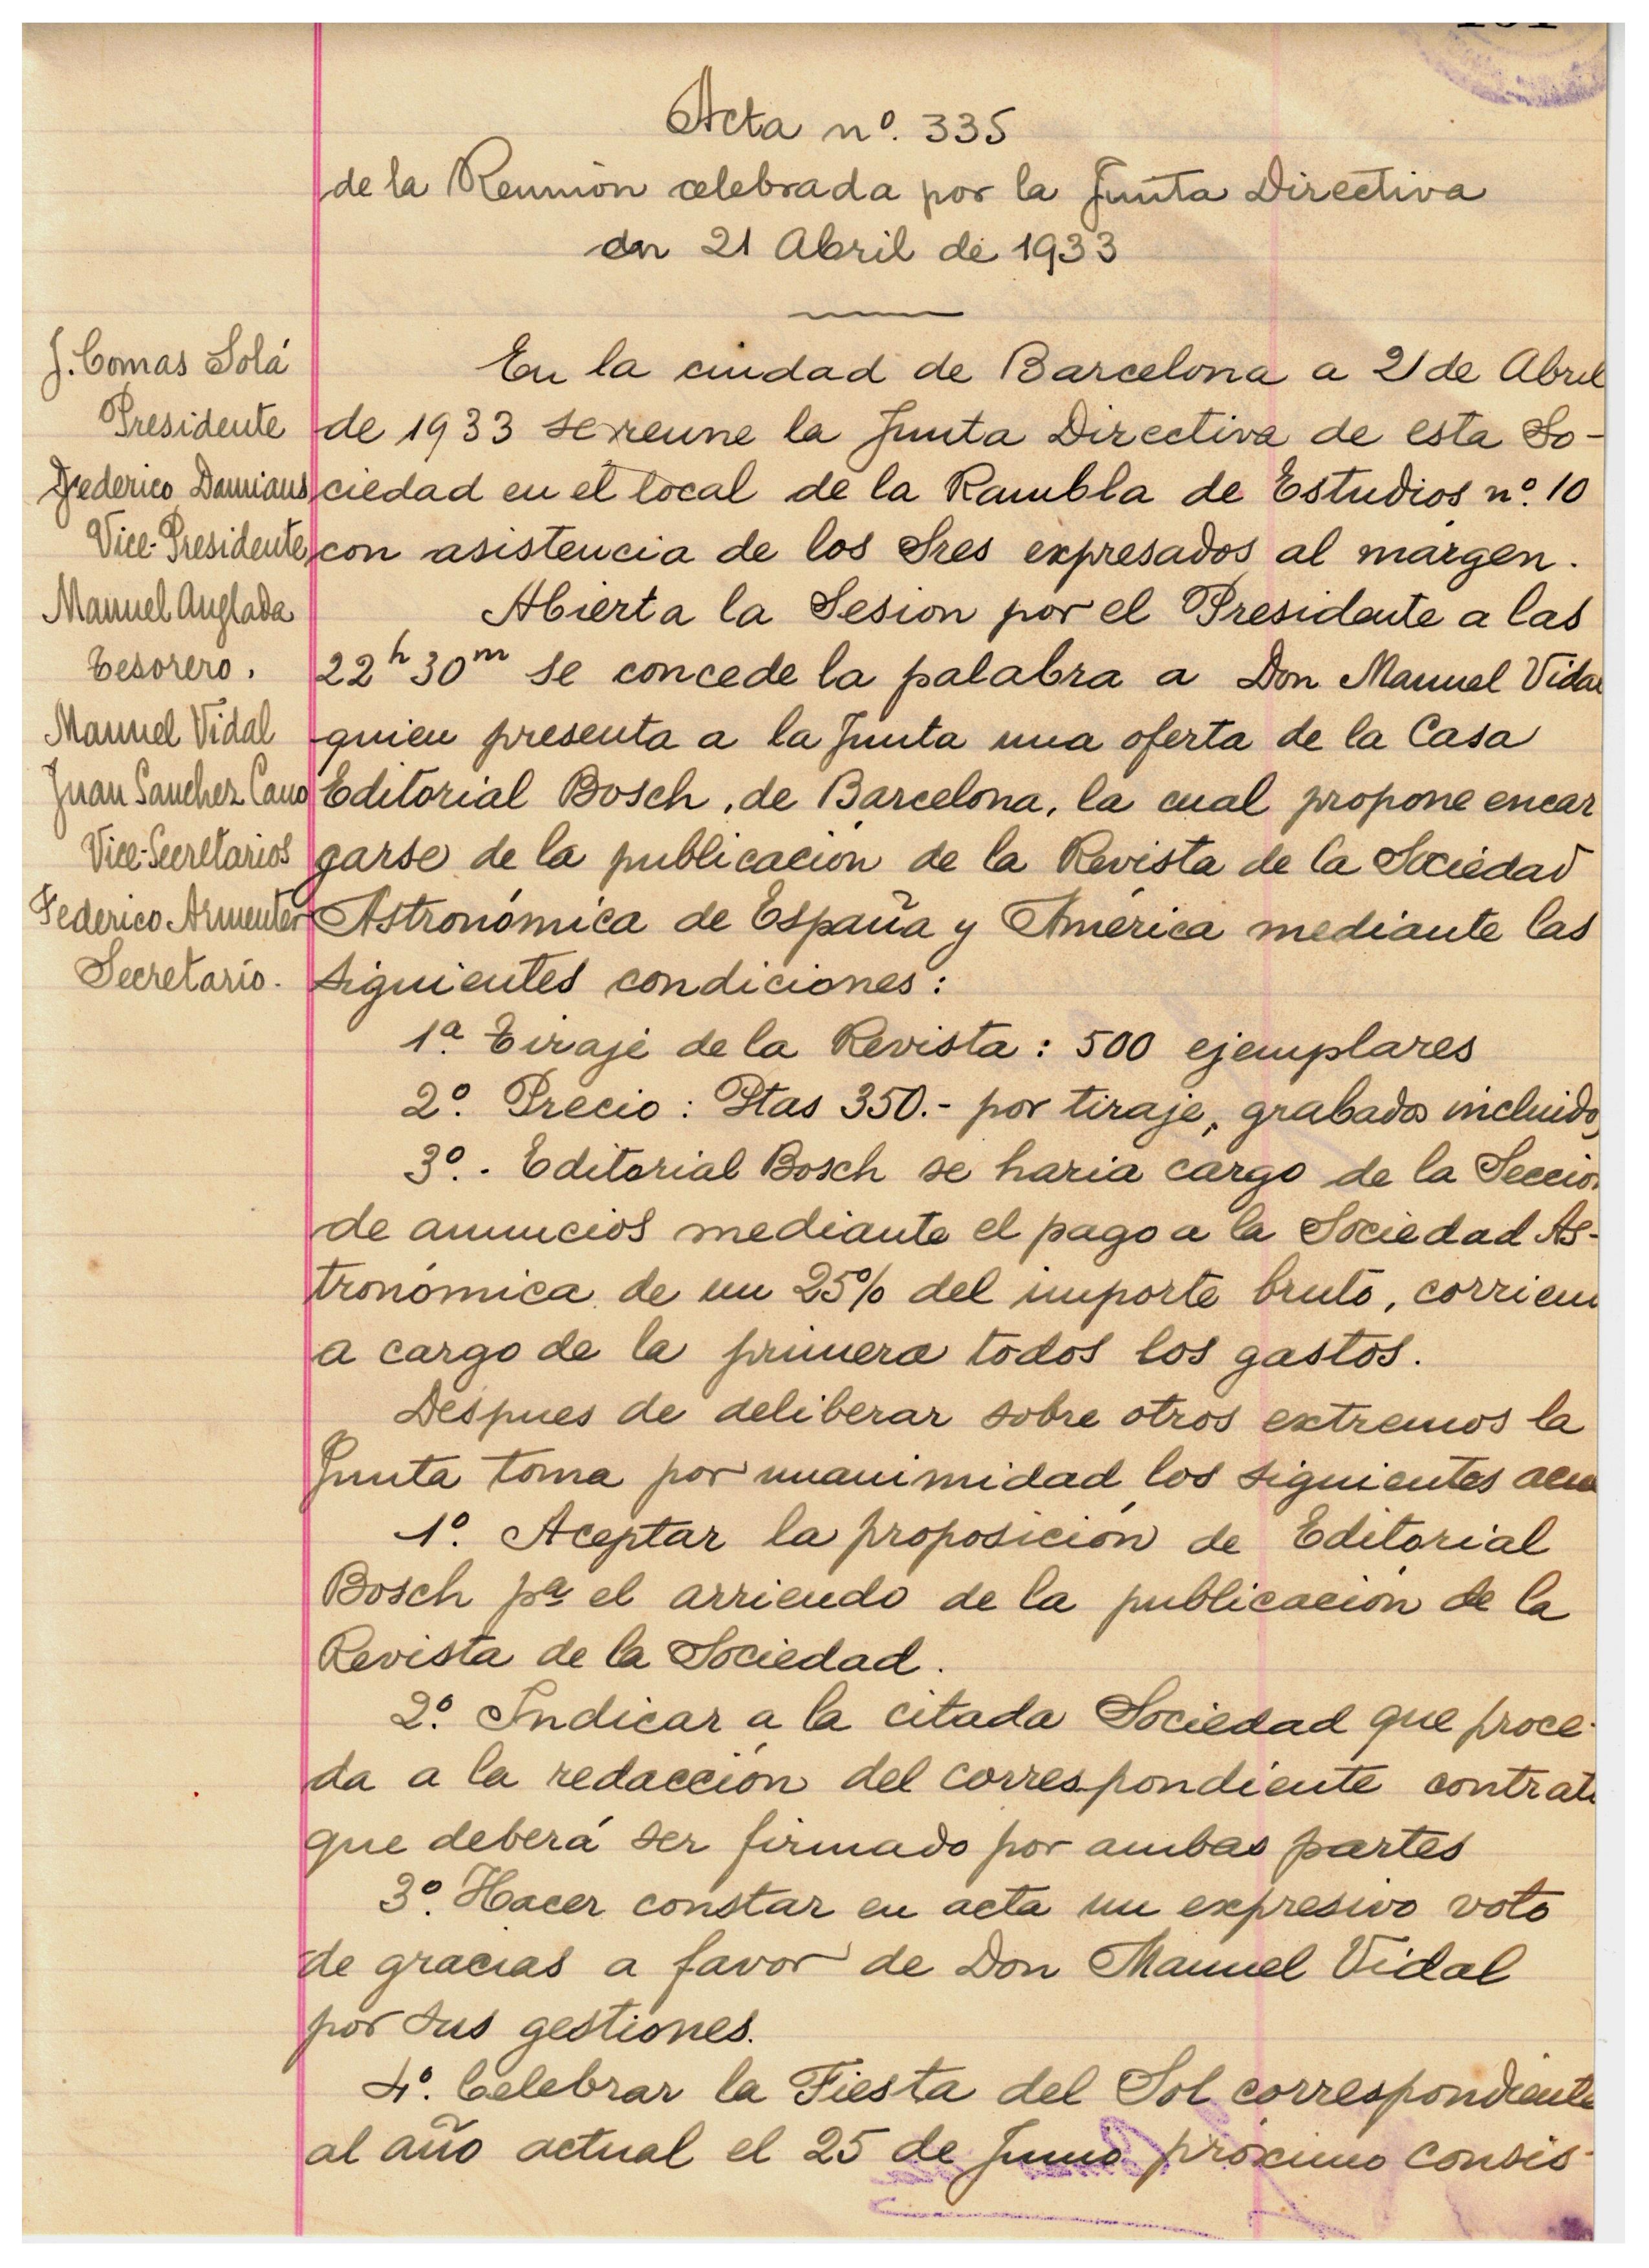 Acta nº. 335
de la Reunión celebrada por la Junta Directiva
en 21 Abril de 1933
J. Comas Solá
Presidente
Federico Damians
Vice-Presidente
Manuel Anglada
Tesorero.
Manuel Vidal
Juan Sanchez Cano
Vice-Secretarios
Federico Armenter
Secretario.
En la ciudad de Barcelona a 21 de Abril
de 1933 se reune la Junta Directiva de esta So-
ciedad en el local de la Rambla de Estudios nº. 10
con asistencia de los Sres expresados al márgen.
Abierta la Sesion por el Presidente a las
22h 30m se concede la palabra a Don Manuel Vidal
quien presenta a la Junta una oferta de la Casa
Editorial Bosch, de Barcelona, la cual propone encar
garse de la publicación de la Revista de la Sociedad
Astronómica de España y América mediante las
siguientes condiciones:
1ª. Tiraje de la Revista: 500 ejemplares
2º. Precio: Ptas 350.- por tiraje, grabados incluidos
3º.- Editorial Bosch se haria cargo de la Seccion
de anuncios mediante el pago a la Sociedad As-
tronómica de un 25% del importe bruto, corrien
a cargo de la primera todos los gastos.
Despues de deliberar sobre otros extremos la
Junta toma por unanimidad los siguientes acu
1º. Aceptar la proposición de Editorial
Bosch pª el arriendo de la publicación de la
Revista de la Sociedad.
2º. Indicar a la citada Sociedad que proce-
da a la redacción del correspondiente contrato
que deberá ser firmado por ambas partes
3º. Hacer constar en acta un expresivo voto
de gracias a favor de Don Manuel Vidal
por sus gestiones.
4º. Celebrar la Fiesta del Sol correspondiente
al año actual el 25 de Junio próximo consis-